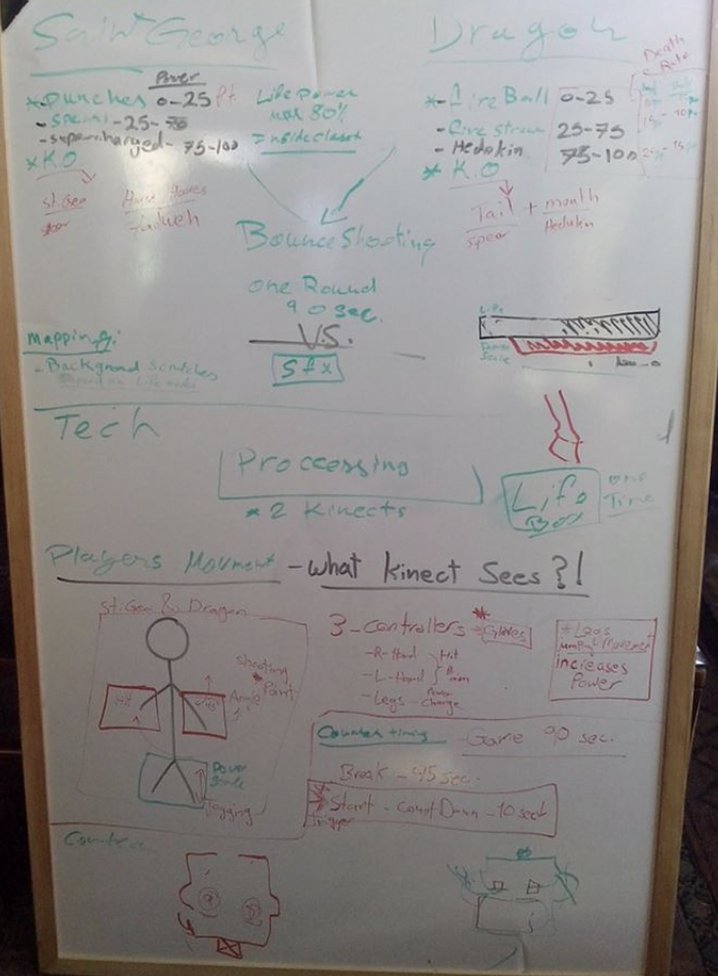 Saint George
Power
* Punches 0-25 Pt.
- special - 25-
- supercharged - 75-100
* K.O
St. Geo
Life power
max 80%
Inside closet
Dragon
* fire Ball 0-25
- fire stream 25-75
- Hedokin 75-100
* K.O
Death
Rate
Tail + mouth
spear Hedukin
Bounce Shooting
one Round
90 sec.
V.S.
Sfx
Mapping:
- Background Scratches
Life
Tech
Proccessing
* 2 Kinects
Life
Box
one
Time
Players Movment - what Kinect Sees?!
St. Geo & Dragon
shooting
Point
Angle
Hit
Power
Jogging
3 - controllers * Gloves
- R-Hand Hit
- L-Hand
- Legs - Power
Charge
* Legs
Movement
increases
Power
Counter timing - Game 90 sec.
Break - 45 sec.
* Start - Count Down - 10 sec
Trigger